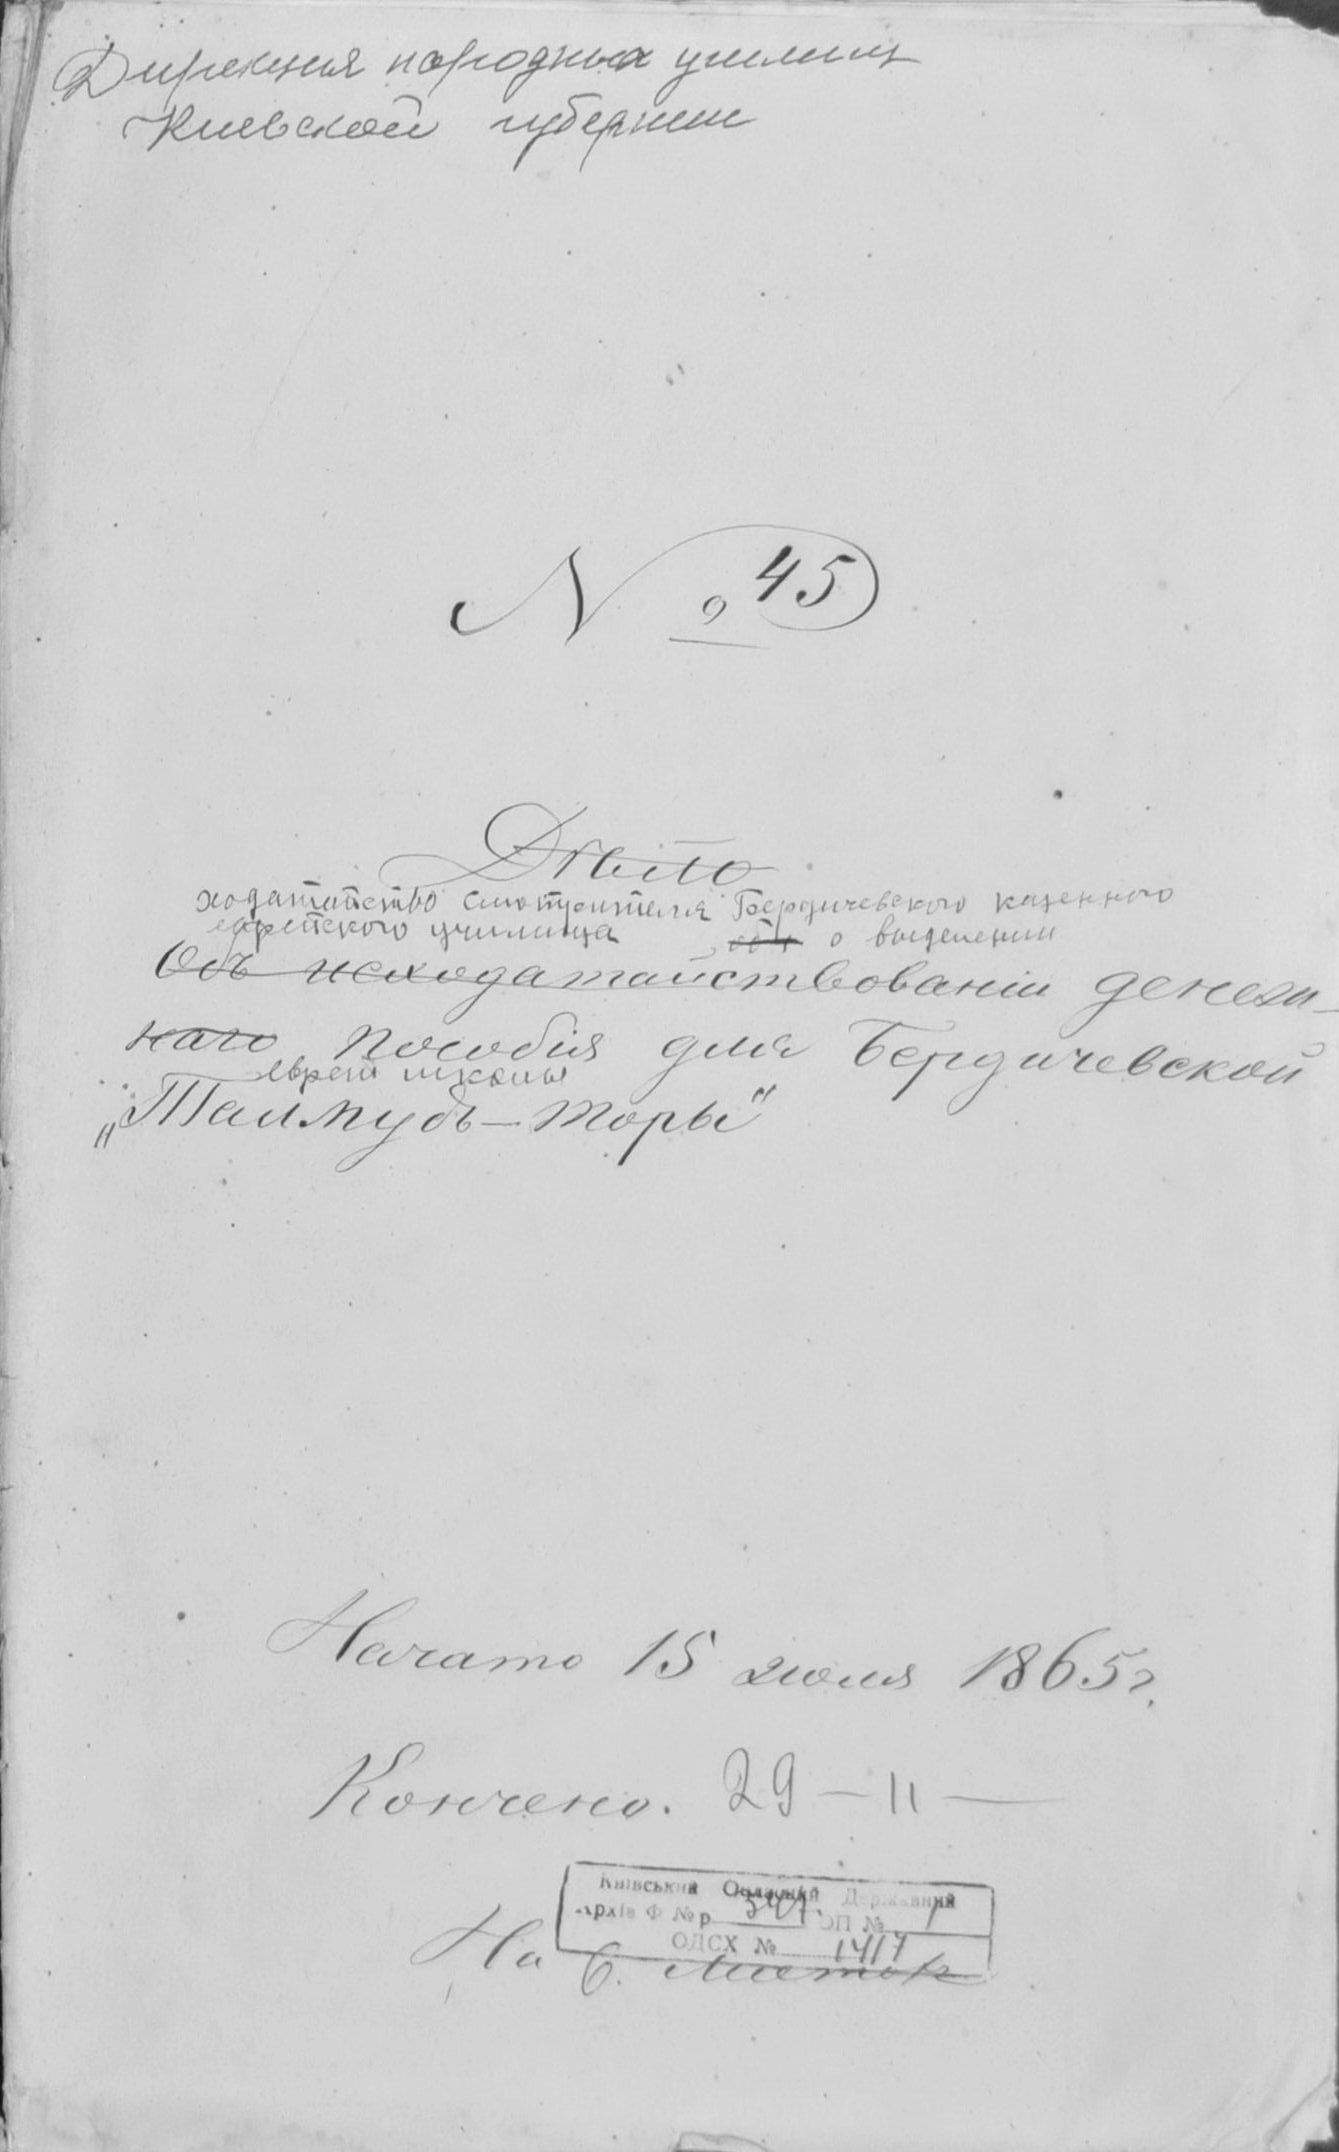 Дирекция народных училищ
Киевской губернии
№ 45
Дѣло
ходатайство смотрителя Бердичевского казенного
еврейского училища о выделении
Объ исходатайствованіи денеж-
наго пособія для Бердичевской
еврей школы
„Талмудъ-Торы"
Начато 15 июля 1865 г.
Кончено. 29 — II —
Київський Обласний Державний
Архів Ф № р 347. ОП № 1
ОДСХ № 1417
На 6. листах